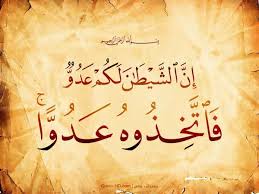 بسم الله الرحمن الرحيم
إِنَّ ٱلشَّيْطَٰنَ لَكُمْ عَدُوٌّ
فَٱتَّخِذُوهُ عَدُوًّا ۚ